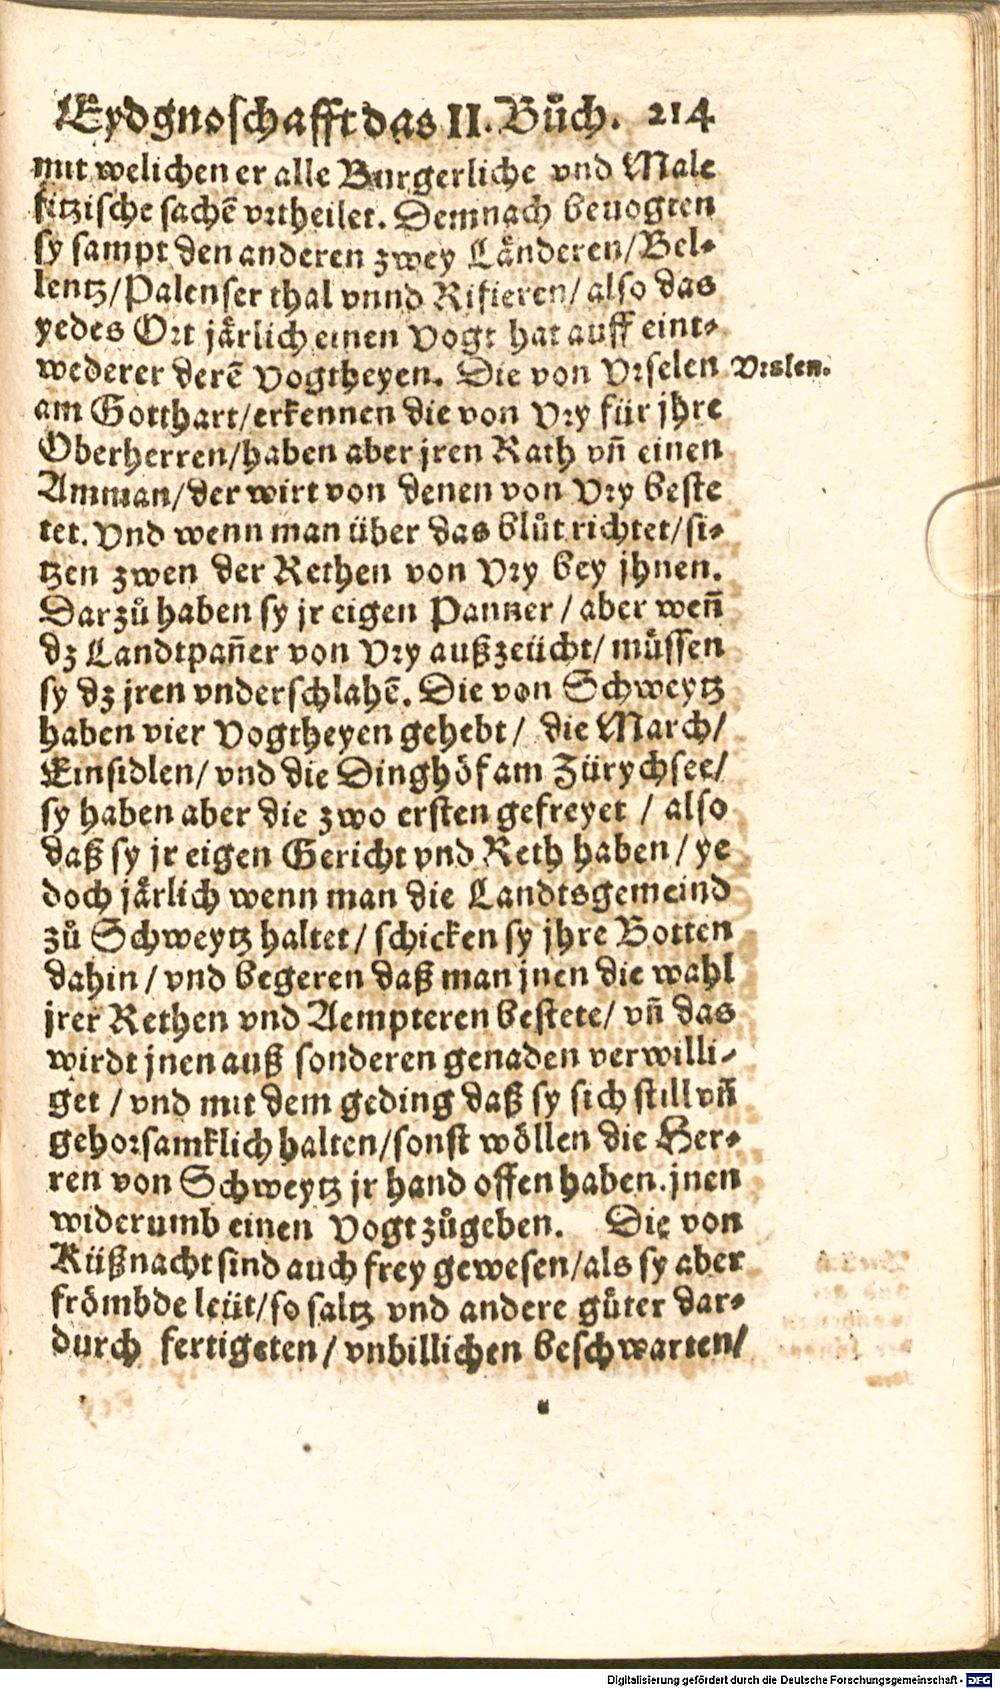 Eydgnoschafft das II. Bůch. 214
mit welichen er alle Burgerliche vnd Male
fitzische sachē vrtheilet. Demnach beuogten
sy sampt den anderen zwey Länderen/Bel-
lentz/Palenser thal vnnd Rifieren/ also das
yedes Ort järlich einen Vogt hat auff eint-
wederer derē Vogtheyen. Die von Vrselen
Vrslen.
am Gotthart/erkennen die von Vry für jhre
Oberherren/haben aber jren Rath vñ einen
Amman/der wirt von denen von Vry beste
tet. Vnd wenn man über das blůt richtet/si-
tzen zwen der Rethen von Vry bey jhnen.
Darzů haben sy jr eigen Panner / aber weñ
dz Landtpañer von Vry außzeücht/ müssen
sy dz jren vnderschlahē. Die von Schweytz
haben vier Vogtheyen gehebt / die March/
Einsidlen/ vnd die Dinghöf am Zürychsee/
sy haben aber die zwo ersten gefreyet / also
daß sy jr eigen Gericht vnd Reth haben / ye
doch järlich wenn man die Landtsgemeind
zů Schweytz haltet / schicken sy jhre Botten
dahin / vnd begeren daß man jnen die wahl
jrer Rethen vnd Aempteren bestete/ vñ das
wirdt jnen auß sonderen genaden verwilli-
get / vnd mit dem geding daß sy sich still vñ
gehorsamklich halten/sonst wöllen die Her-
ren von Schweytz jr hand offen haben. jnen
widerumb einen Vogt zůgeben. Die von
Küßnacht sind auch frey gewesen/als sy aber
frömbde leüt/so saltz vnd andere gůter dar-
durch fertigeten / vnbillichen beschwarten/
Digitalisierung gefördert durch die Deutsche Forschungsgemeinschaft - DFG